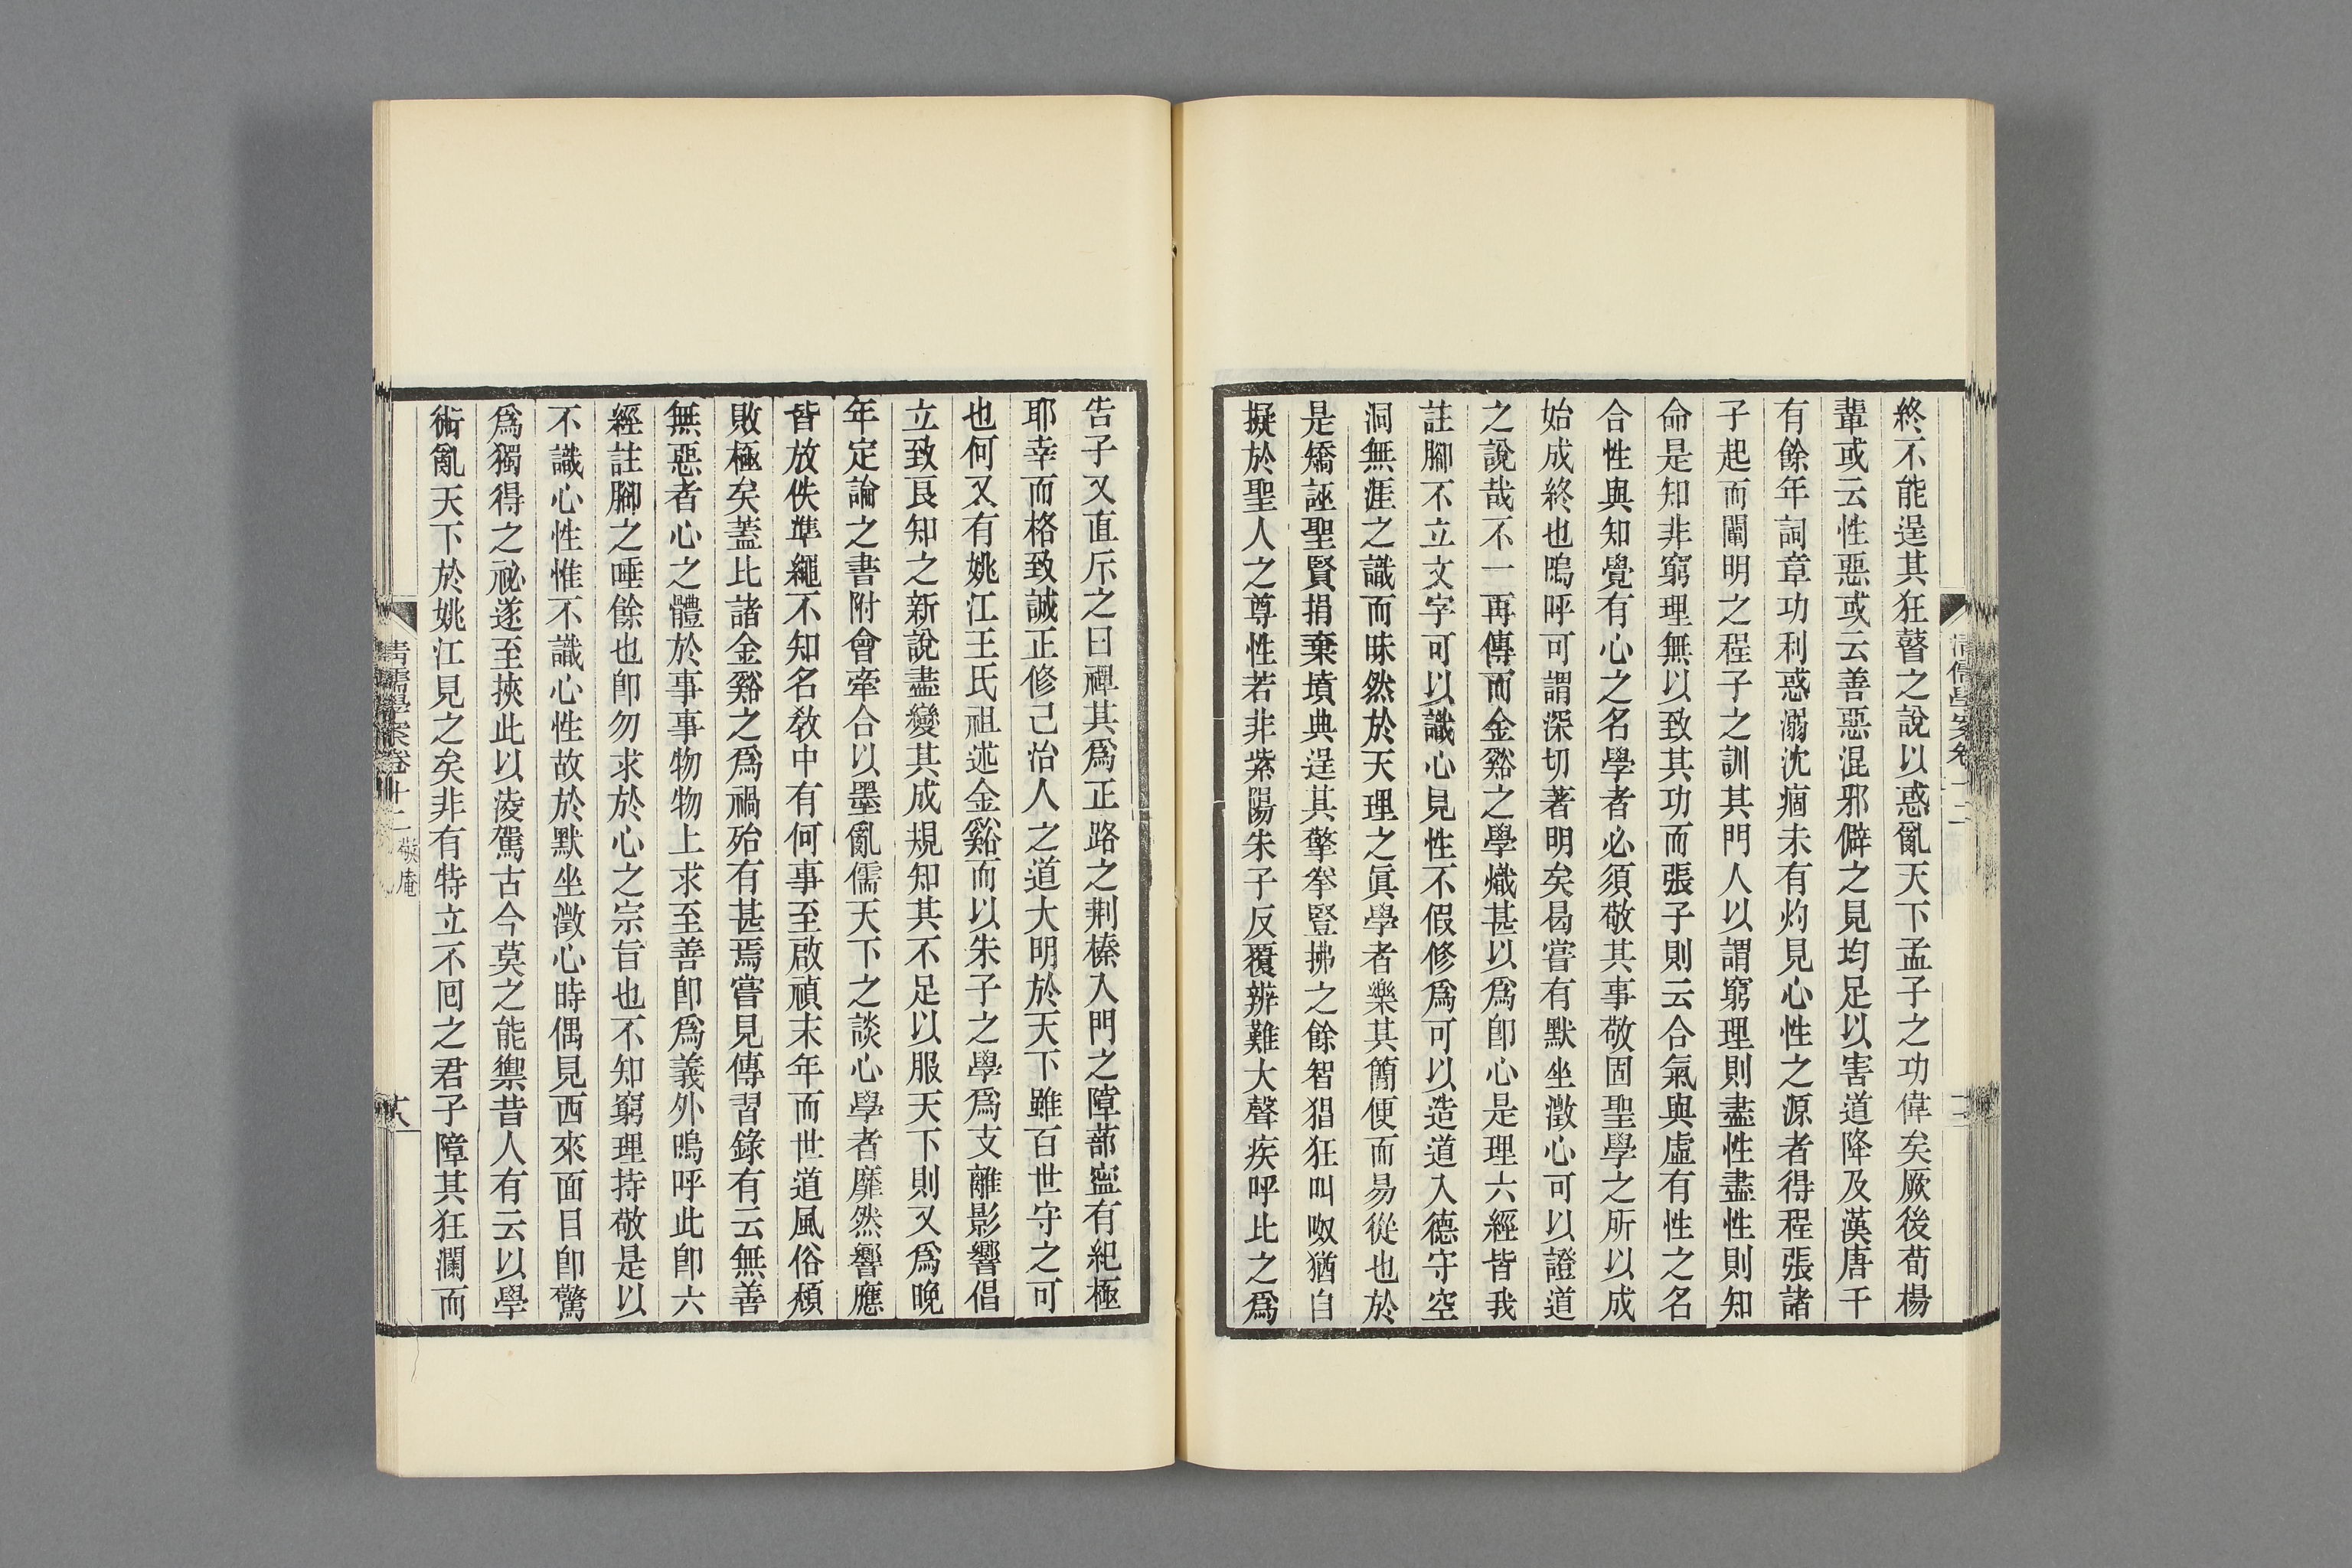 終不能逞其狂瞽之說以惑亂天下孟子之功偉矣厥後荀楊
輩或云性惡或云善惡混邪僻之見均足以害道降及漢唐千
有餘年詞章功利惑溺沈痼未有灼見心性之源者得程張諸
子起而闡明之程子之訓其門人以謂窮理則盡性盡性則知
命是知非窮理無以致其功而張子則云合氣與虛有性之名
合性與知覺有心之名學者必須敬其事敬固聖學之所以成
始成終也嗚呼可謂深切著明矣曷嘗有默坐澂心可以證道
之說哉不一再傳而金谿之學熾甚以爲卽心是理六經皆我
註腳不立文字可以識心見性不假修爲可以造道入德守空
洞無涯之識而昧然於天理之眞學者樂其簡便而易從也於
是矯誣聖賢捐棄墳典逞其擎拳豎拂之餘智猖狂叫呶猶自
擬於聖人之尊性若非紫陽朱子反覆辨難大聲疾呼比之爲
告子又直斥之曰禪其爲正路之荆榛入門之障蔀寍有紀極
耶幸而格致誠正修己治人之道大明於天下雖百世守之可
也何又有姚江王氏祖述金谿而以朱子之學爲支離影響倡
立致良知之新說盡變其成規知其不足以服天下則又爲晚
年定論之書附會牽合以墨亂儒天下之談心學者靡然響應
皆放佚準繩不知名敎中有何事至啟禎末年而世道風俗頹
敗極矣蓋比諸金谿之爲禍殆有甚焉嘗見傳習錄有云無善
無惡者心之體於事事物物上求至善卽爲義外嗚呼此卽六
經註腳之唾餘也卽勿求於心之宗旨也不知窮理持敬是以
不識心性惟不識心性故於默坐澂心時偶見西來面目卽驚
爲獨得之祕遂至挾此以淩駕古今莫之能禦昔人有云以學
術亂天下於姚江見之矣非有特立不囘之君子障其狂瀾而
清儒學案卷十二 敬庵